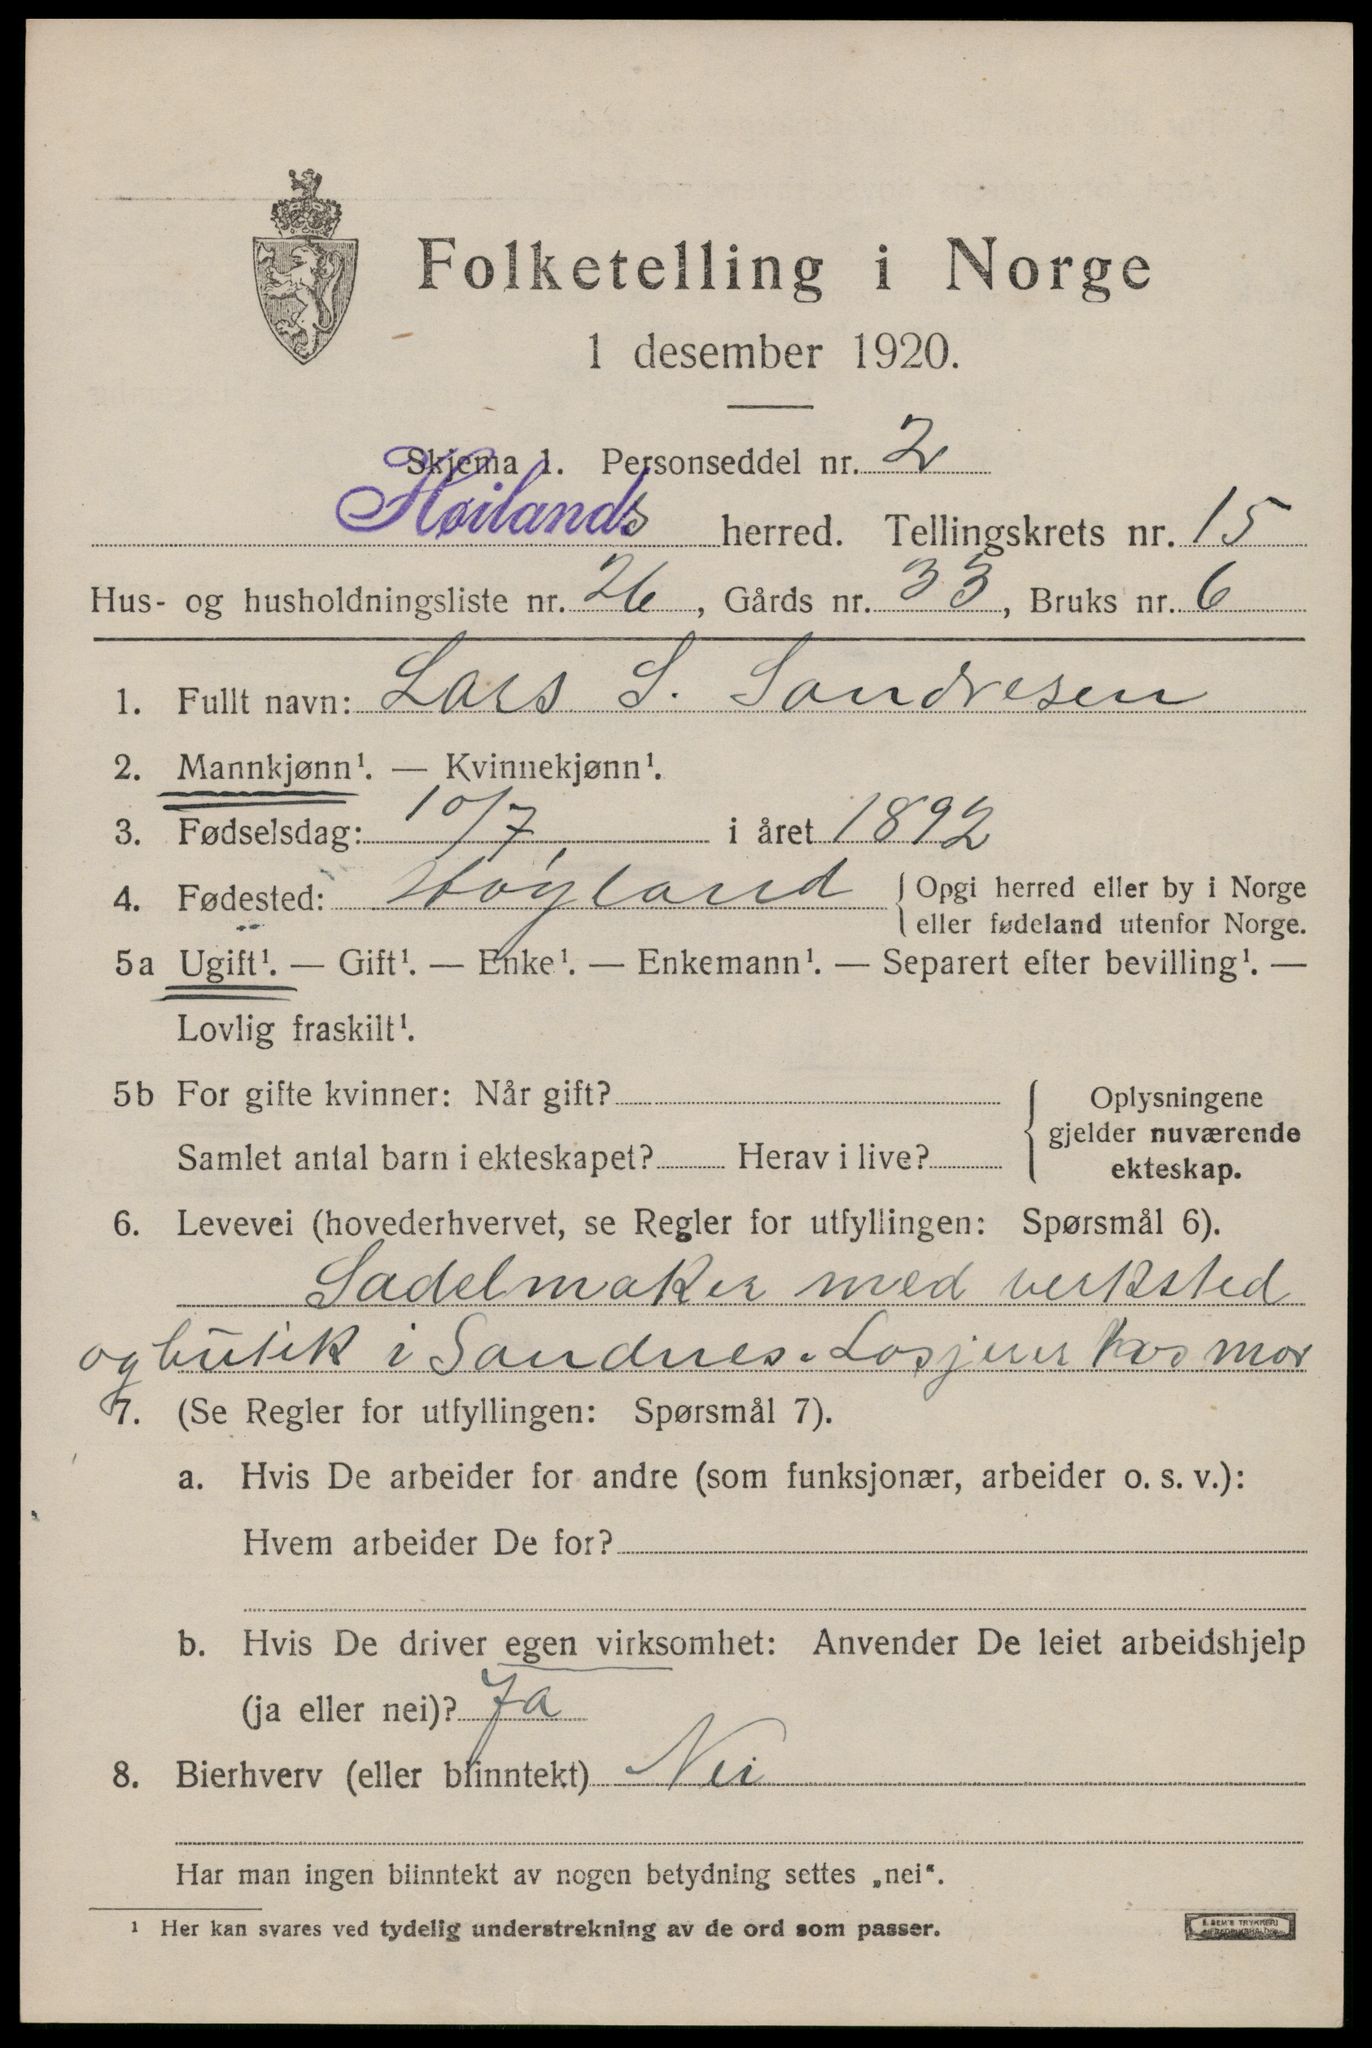 Folketelling i Norge
1 desember 1920.
Skjema 1. Personseddel nr. 2
Høilands herred. Tellingskrets nr. 15
Hus- og husholdningsliste nr. 26, Gårds nr. 33, Bruks nr. 6
1. Fullt navn: Lars S. Sandresen
2. Mannkjønn¹. — Kvinnekjønn¹.
3. Fødselsdag: 10/7 i året 1892
4. Fødested: Høyland { Opgi herred eller by i Norge
eller fødeland utenfor Norge.
5a Ugift¹. — Gift¹. — Enke¹. — Enkemann¹. — Separert efter bevilling¹. —
Lovlig fraskilt¹.
5b For gifte kvinner: Når gift?
Samlet antal barn i ekteskapet? Herav i live?
Oplysningene
gjelder nuværende
ekteskap.
6. Levevei (hovederhvervet, se Regler for utfyllingen: Spørsmål 6).
Sadelmaker med verksted
og butik i Sandnes. Losjerer hos mor
7. (Se Regler for utfyllingen: Spørsmål 7).
a. Hvis De arbeider for andre (som funksjonær, arbeider o. s. v.):
Hvem arbeider De for?
b. Hvis De driver egen virksomhet: Anvender De leiet arbeidshjelp
(ja eller nei)? Ja
8. Bierhverv (eller biinntekt) Nei
Har man ingen biinntekt av nogen betydning settes „nei“.
¹ Her kan svares ved tydelig understrekning av de ord som passer.